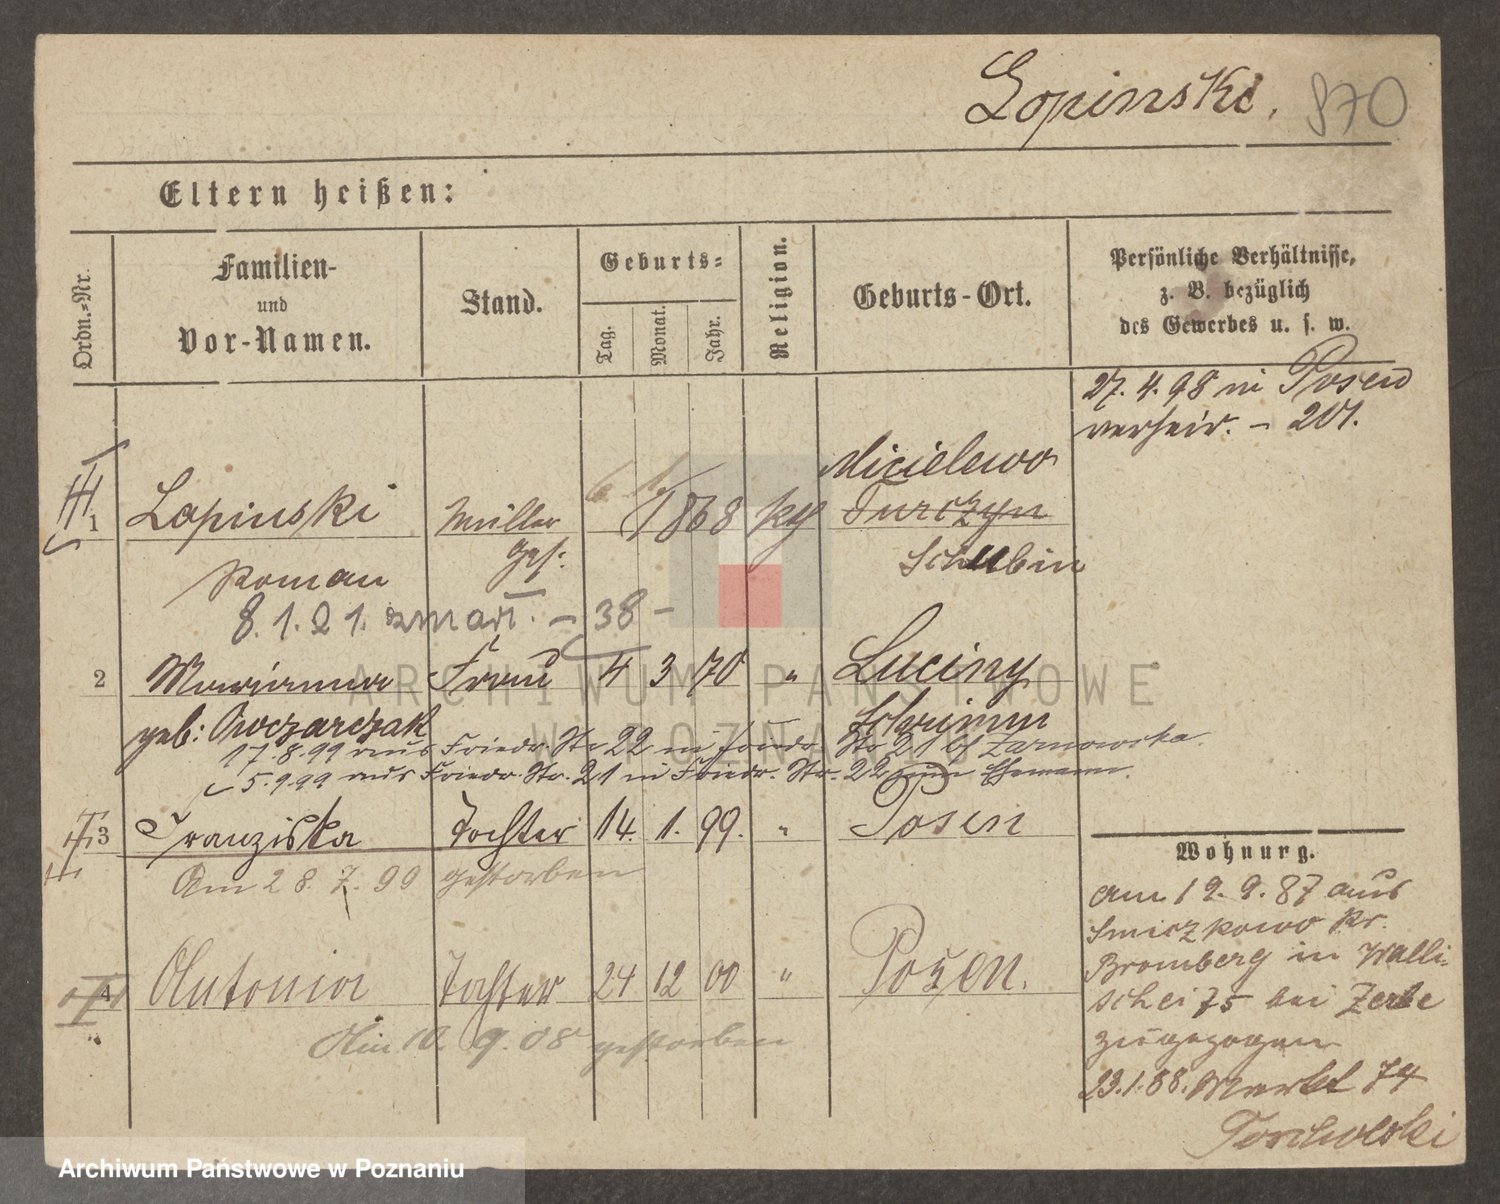 Lopinski. 870
Eltern heißen:
Ordn.-Nr.
Familien-
und
Vor-Namen.
Stand.
Geburts-
Tag.
Monat.
Jahr.
Religion.
Geburts-Ort.
Persönliche Verhältnisse,
z. B. bezüglich
des Gewerbes u. s. w.
27. 4. 98 in Posen
verheir. - 201.
Micielewo
1 Lopinski Müller 6 1 1868 Turczyn
Roman ges. Schubin
8. 1. 21. zmarł. - 38 -
2 Marianna Frau 4 3 70 " Luciny
geb: Owczarczak Schrimm
17.8.99 aus Friedr. Str 22 in Friedr. Str 21 bf Zarnowska.
5.9.99 aus Friedr. Str. 21 in Friedr. Str. 22 zum Ehemann.
3 Franziska Tochter 14. 1. 99. " Posen
Am 28. 7. 99 gestorben
4 Antonia Tochter 24 12 00 " Posen.
Am 10. 9. 08 gestorben
Wohnung.
am 19. 9. 87 aus
Smiczkowo Kr.
Bromberg in Walli-
schei 75 bei Zerbe
zugezogen
23.1.88. Markt 74
ARCHIWUM PAŃSTWOWE
W POZNANIU
Archiwum Państwowe w Poznaniu